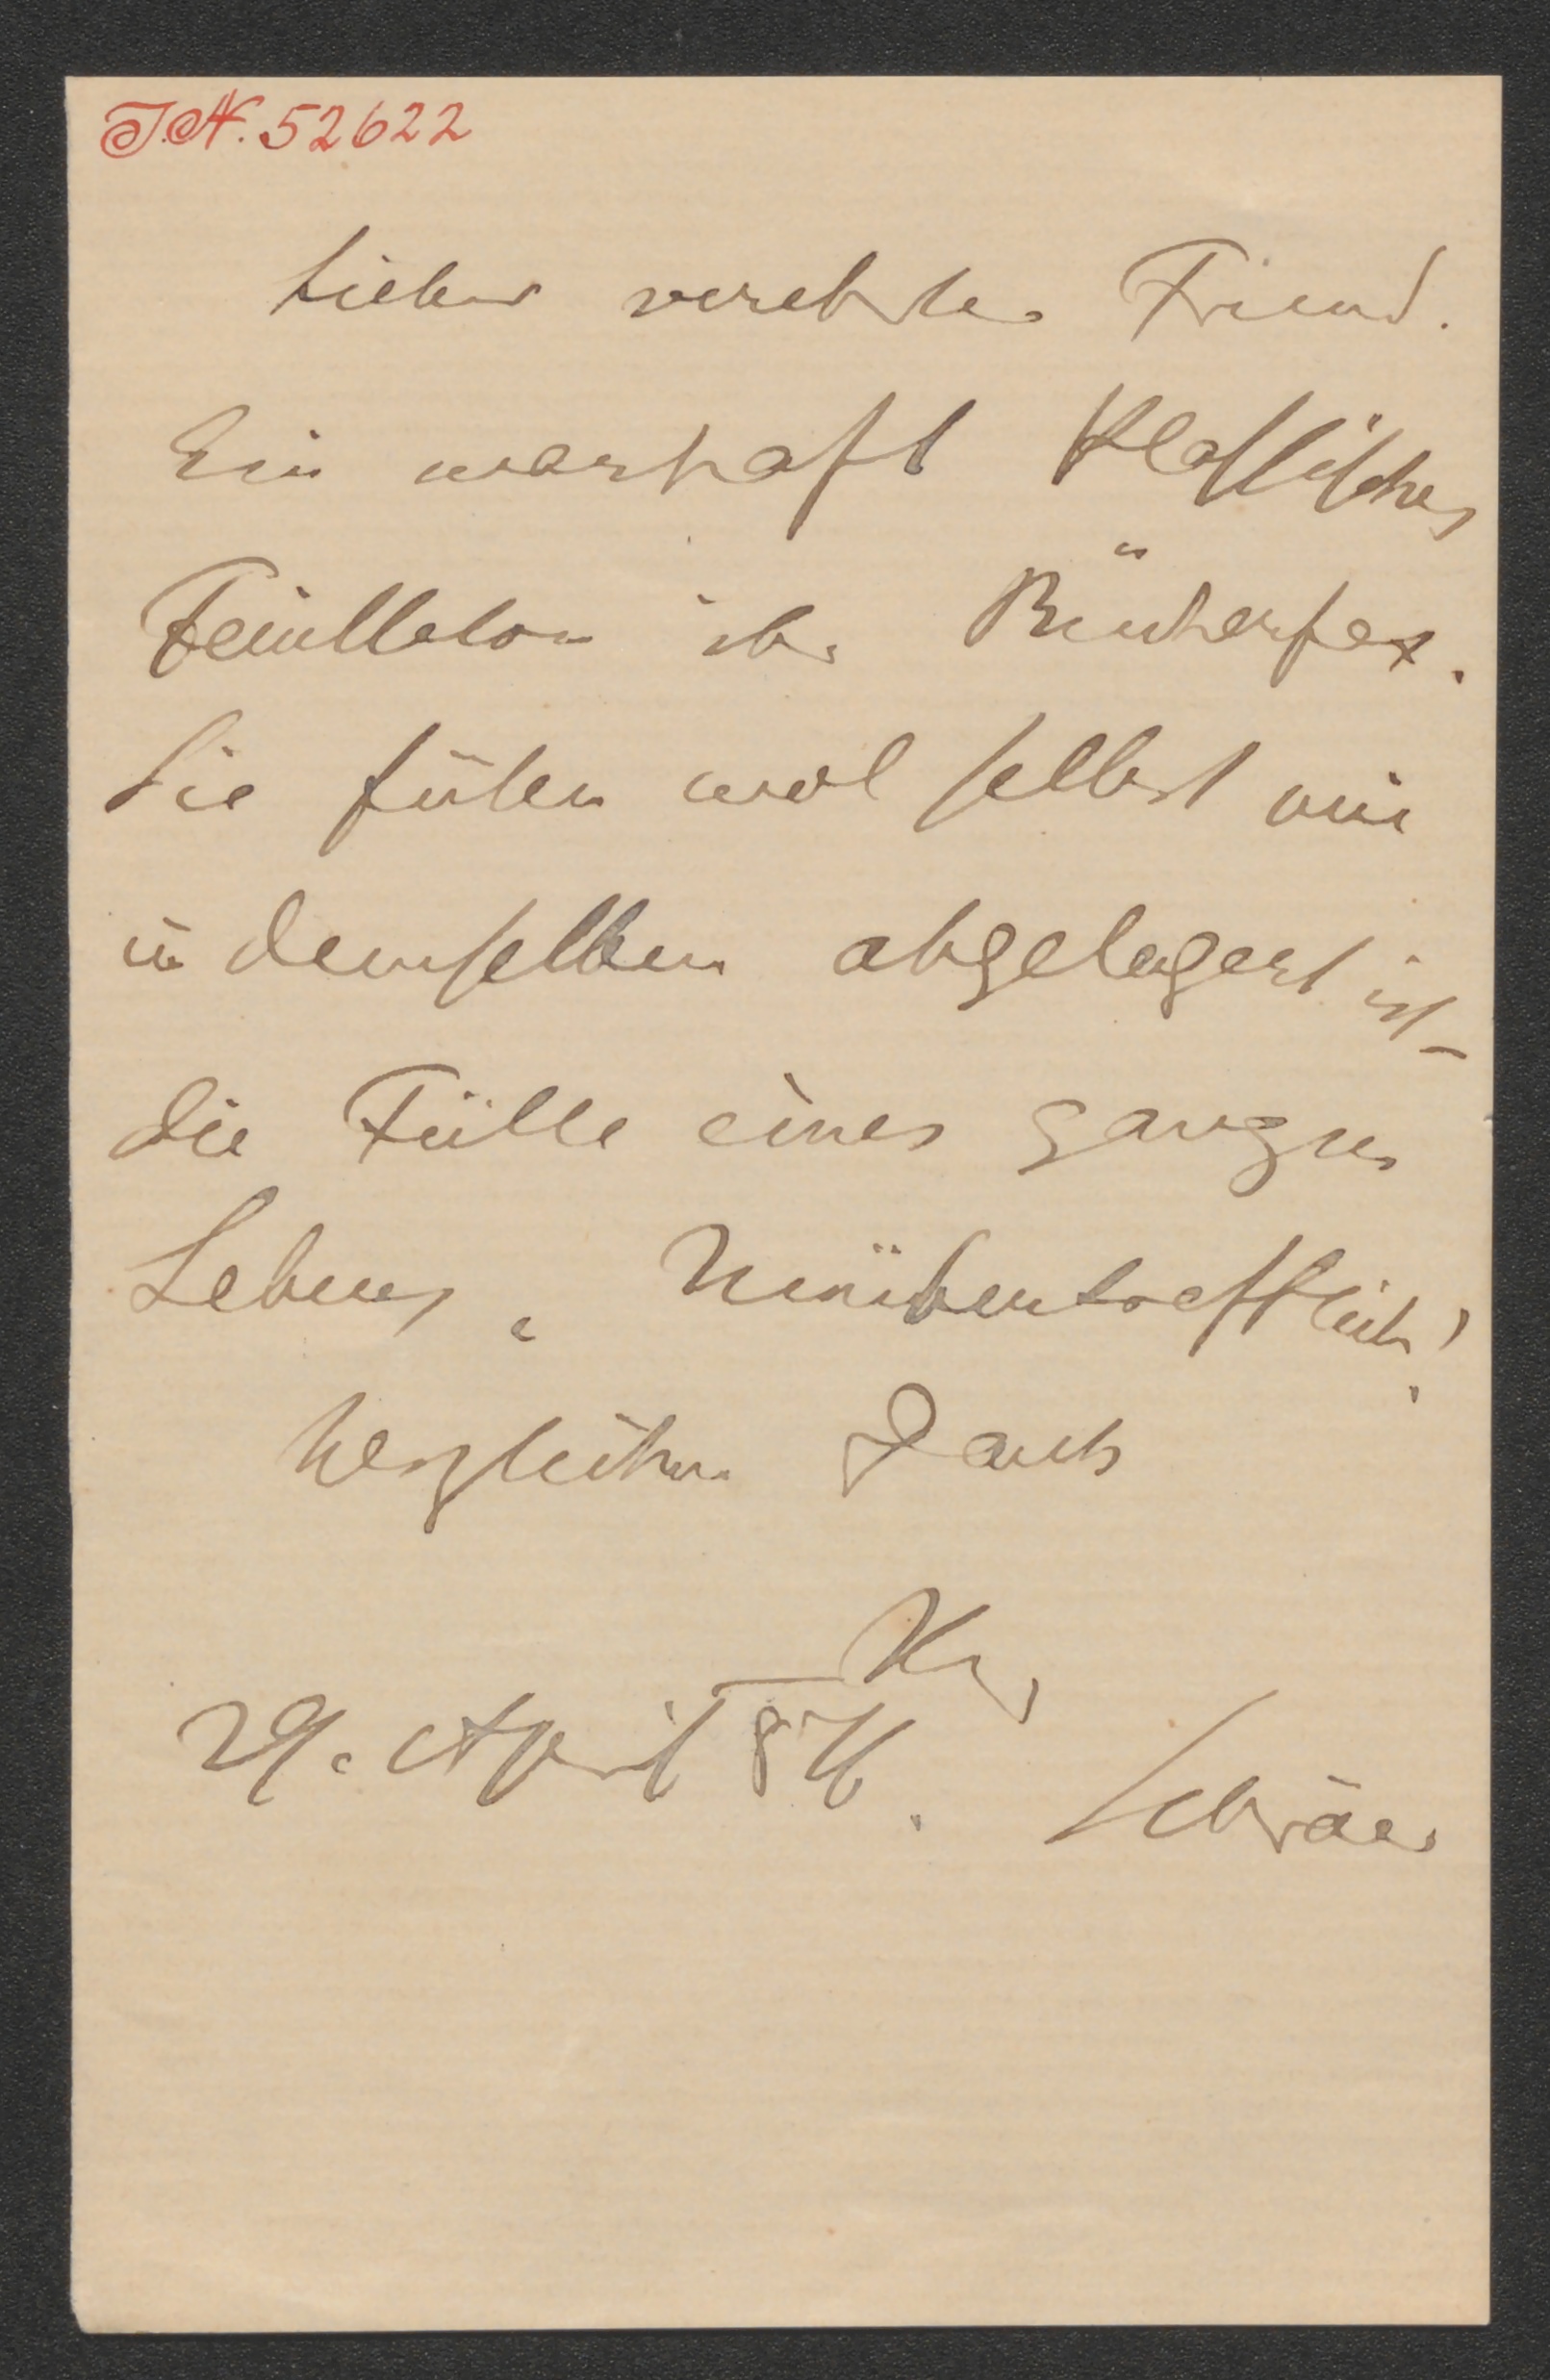 J.N. 52622
Lieber verehrter Freund.
Ein warhaft klassisches
Feuilleton ihr Bücherfex.
Sie fülen wol selbst wie
in demselben abgelagert ist –
die Fülle eines ganzen
Lebens. Unübertrefflich!
Herzlichen Dank
Ihr
29. April 876.
Schröer